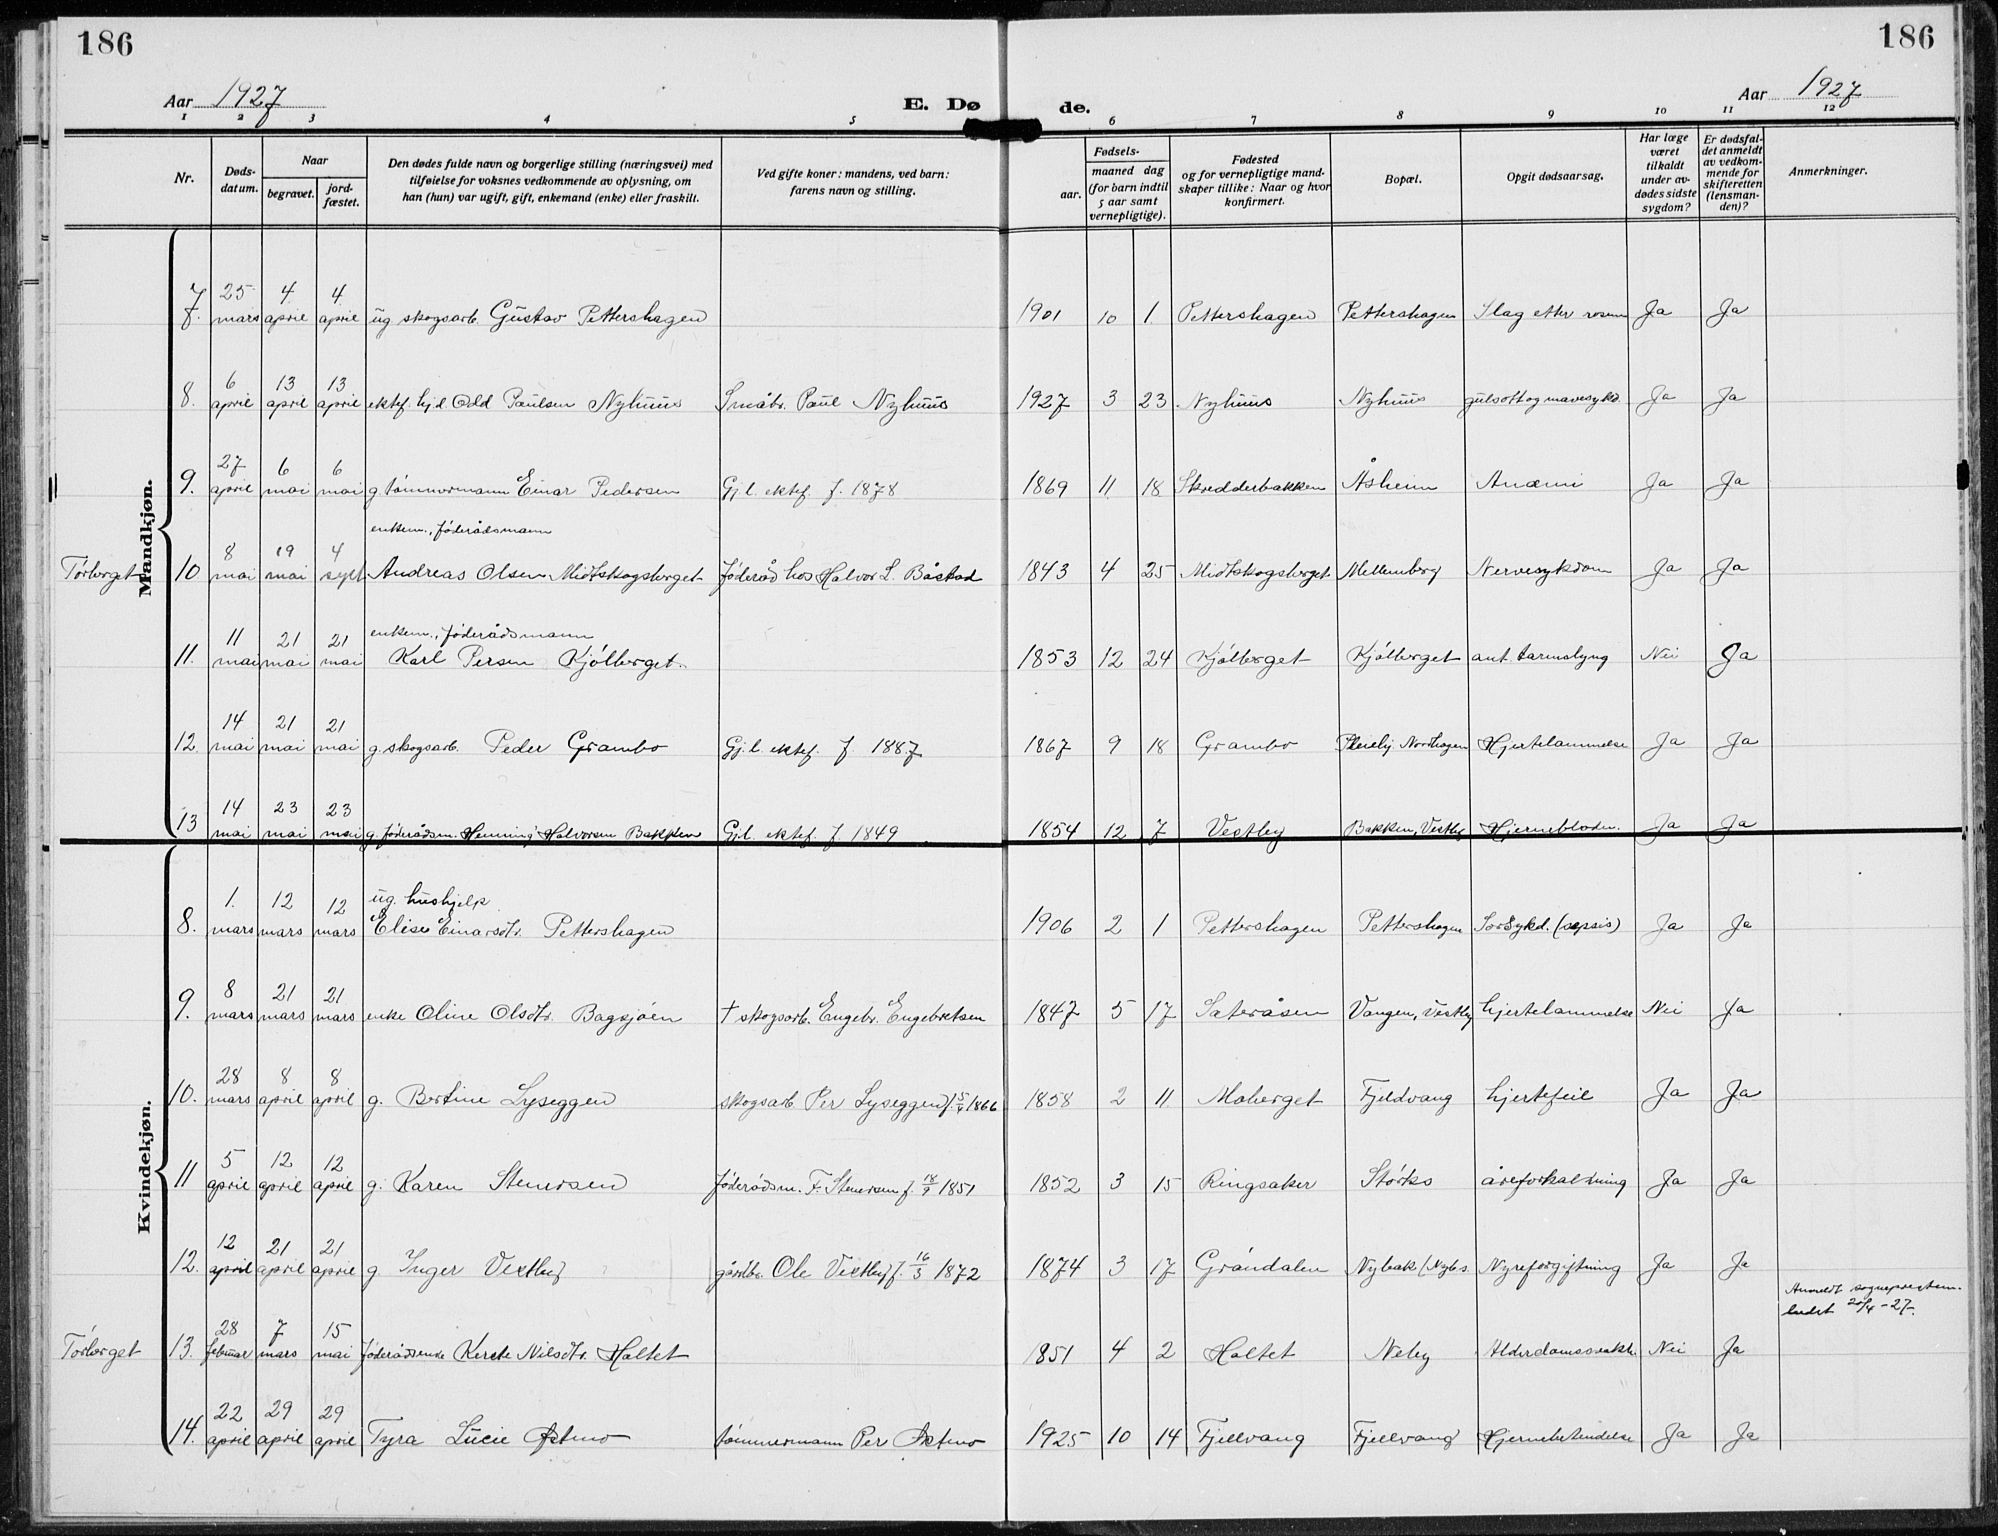 186
186
Aar 1927
E. Dø
de.
Aar 1927
1 2 3 4 5 6 7 8 9 10 11 12
Nr.
Døds-
datum.
Naar
begravet.
jord-
fæstet.
Den dødes fulde navn og borgerlige stilling (næringsvei) med
tilføielse for voksnes vedkommende av oplysning, om
han (hun) var ugift, gift, enkemand (enke) eller fraskilt.
Ved gifte koner: mandens, ved barn:
farens navn og stilling.
Fødsels-
aar.
maaned dag
(for barn indtil
5 aar samt
vernepligtige).
Fødested
og for vernepligtige mand-
skaper tillike: Naar og hvor
konfirmert.
Bopæl.
Opgit dødsaarsag.
Har læge
været
tilkaldt
under av-
dødes sidste
sygdom?
Er dødsfal-
det anmeldt
av vedkom-
mende for
skifteretten
(lensman-
den)?
Anmerkninger.
Mandkjøn.
7. 25 mars 4 april 4 april ug skogsarb. Gustav Pettershagen 1901 10 1 Pettershagen Pettershagen Slag etter rosen Ja Ja
8. 6 april 13 april 13 april ektef. hjd. Odd Paulsen Nyhuus Småbr. Paul Nyhuus 1927 3 23 Nyhuus Nyhuus gulsott og mavesykd. Ja Ja
9. 27 april 6 mai 6 mai g. tømmermann Einar Pedersen Gj.l. ektef. f. 1878 1869 11 18 Skredderbakken Åsheim Anæmi Ja Ja
enkem., føderådsmann
Tørberget 10 8 mai 19 mai 4 sept Andreas Olsen Midtskogsberget føderåd hos Halvor L. Båstad 1843 4 25 Midtskogsberget Mellemberg Nervesykdom Ja Ja
enkem., føderådsmann
11. 11 mai 21 mai 21 mai Karl Persen Kjølberget 1853 12 24 Kjølberget Kjølberget ant. tarmslyng Nei Ja
12. 14 mai 21 mai 21 mai g. skogsarb. Peder Grambo Gj.l. ektef. f. 1887 1867 9 18 Grambo Nordhagen Hjertelammelse Ja Ja
13 14 mai 23 mai 23 mai g. føderådsm. Henning Halvorsen Bakken Gj.l. ektef. f. 1849 1854 12 7 Vestby Bakken, Vestby Hjerneblodn. Ja Ja
Kvindekjøn.
ug. hushjelp
8. 1. mars 12 mars 12 mars Elise Einarsdtr. Pettershagen 1906 2 1 Pettershagen Pettershagen (sepsis) Ja Ja
9. 8 mars 21 mars 21 mars enke Oline Olsdtr. Bagsjøen † skogsarb. Engebr. Engebretsen 1847 5 17 Säteråsen Vangen, Vestby hjertelammelse Nei Ja
10. 28 mars 8 april 8 april g. Bertine Lyseggen skogsarb. Per Lyseggen f. 5/4 1866 1858 2 11 Moberget Fjeldvang hjertefeil Ja Ja
11 5 april 12 april 12 april g. Karen Stenersen føderådsm. F. Stenersen f. 18/9 1851 1852 3 15 Ringsaker Störks åreforkalkning Ja Ja
12. 12 april 21 april 21 april g. Inger Vestby gårdbr. Ole Vestby f. 16/3 1872 1874 3 17 Gröndalen Nybak (Nybs. Nyreforgiftning Ja Ja
Anmeldt sogneprestem-
bedet 20/4 -27.
Tørberget 13. 28 februar 7 mars 15 mai føderådsenke Kersti Nilsdtr. Holtet 1851 4 2 Holtet Neby Alderdomssvakh. Nei Ja
14. 22 april 29 april 29 april Tyra Lucie Astmo tømmermann Per Astmo 1925 10 14 Fjellvang Fjellvang Hjernebetendelse Ja Ja